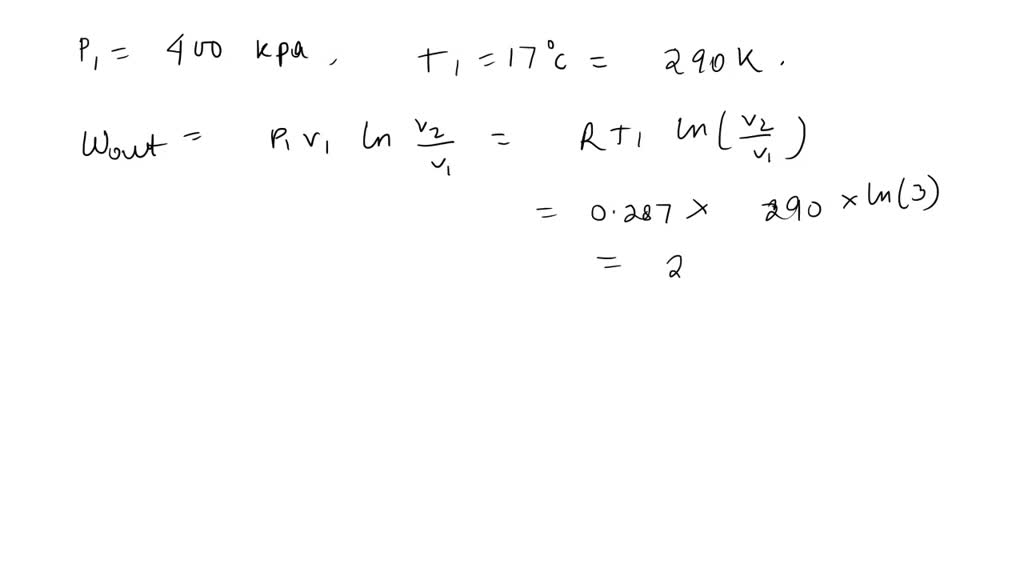 P₁ = 400 kpa, T₁ = 17°c = 290K.
Wout = P₁ v₁ ln v₂/v₁ = RT₁ ln(v₂/v₁)
= 0.287 × 290 × ln(3)
= 2